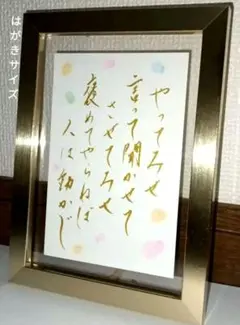 はがきサイズ
やってみせ
言って聞かせて
させてみせ
褒めてやらねば
人は動かじ